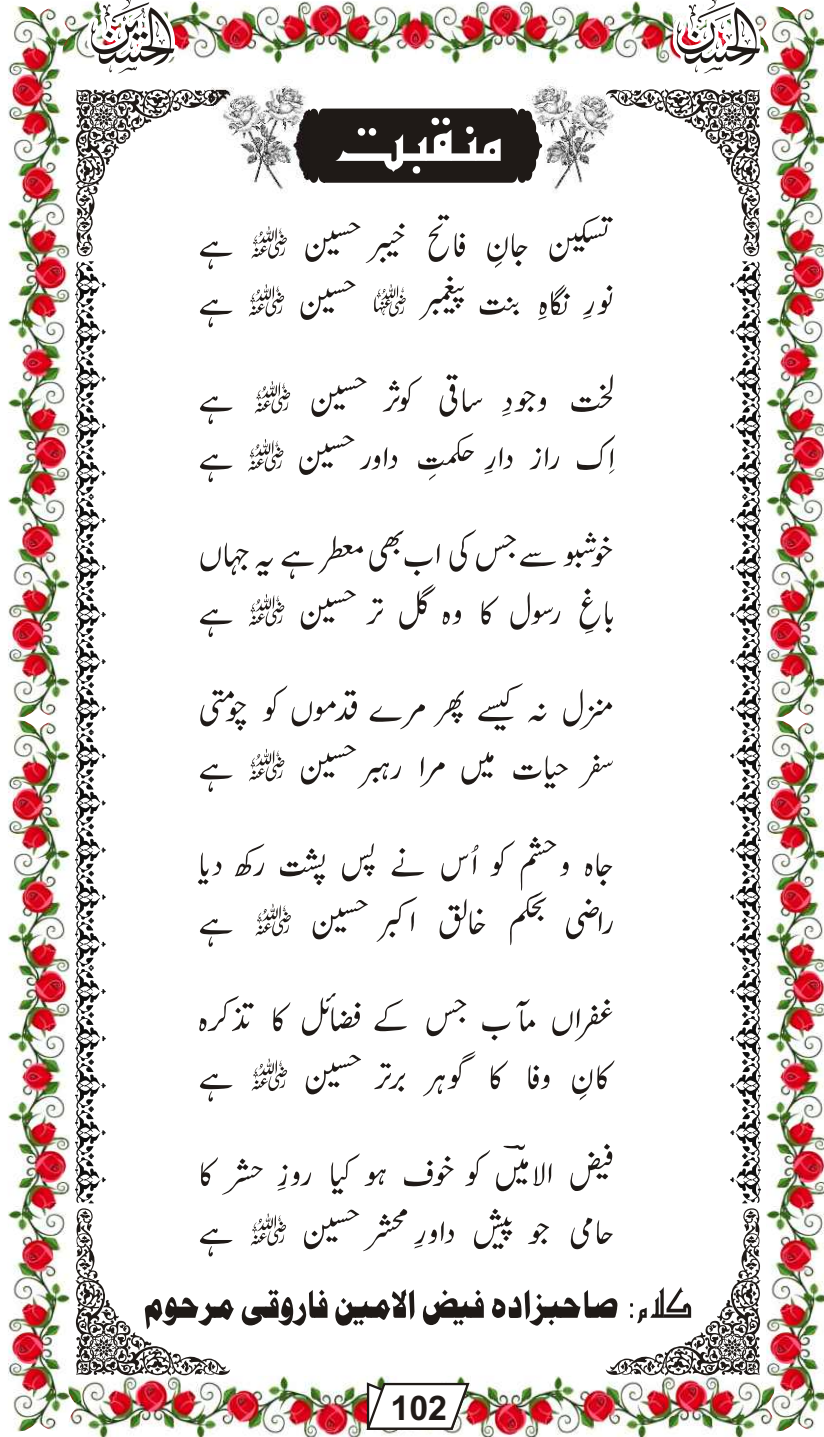 الحسین الحسین
منقبت
تسکین جانِ فاتح خیبر حسین رضی اللہ عنہ ہے
نورِ نگاہِ بنت پیغمبر رضی اللہ عنہا حسین رضی اللہ عنہ ہے
لخت وجودِ ساقی کوثر حسین رضی اللہ عنہ ہے
اِک راز دارِ حکمتِ داور حسین رضی اللہ عنہ ہے
خوشبو سے جس کی اب بھی معطر ہے یہ جہاں
باغِ رسول کا وہ گل تر حسین رضی اللہ عنہ ہے
منزل نہ کیسے پھر مرے قدموں کو چومتی
سفر حیات میں مرا رہبر حسین رضی اللہ عنہ ہے
جاہ و حشم کو اُس نے پس پشت رکھ دیا
راضی بحکم خالق اکبر حسین رضی اللہ عنہ ہے
غفراں مآب جس کے فضائل کا تذکرہ
کانِ وفا کا گوہر برتر حسین رضی اللہ عنہ ہے
فیض الامیںؔ کو خوف ہو کیا روزِ حشر کا
حامی جو پیش داورِ محشر حسین رضی اللہ عنہ ہے
کلام: صاحبزادہ فیض الامین فاروقی مرحوم
102